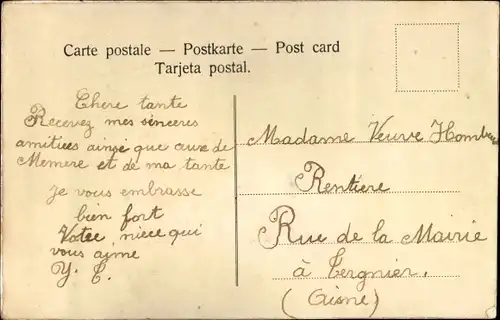 Carte postale — Postkarte — Post card
Tarjeta postal.
Chere tante
Recevez mes sinceres
amitiees ainsé que ceux de
Memere et de ma tante
je vous embrasse
bien fort
Votre niece qui
vous aime
Y. C.
Madame Veuve
Rentiere
Rue de la Mairie
à Tergnier.
(Aisne)